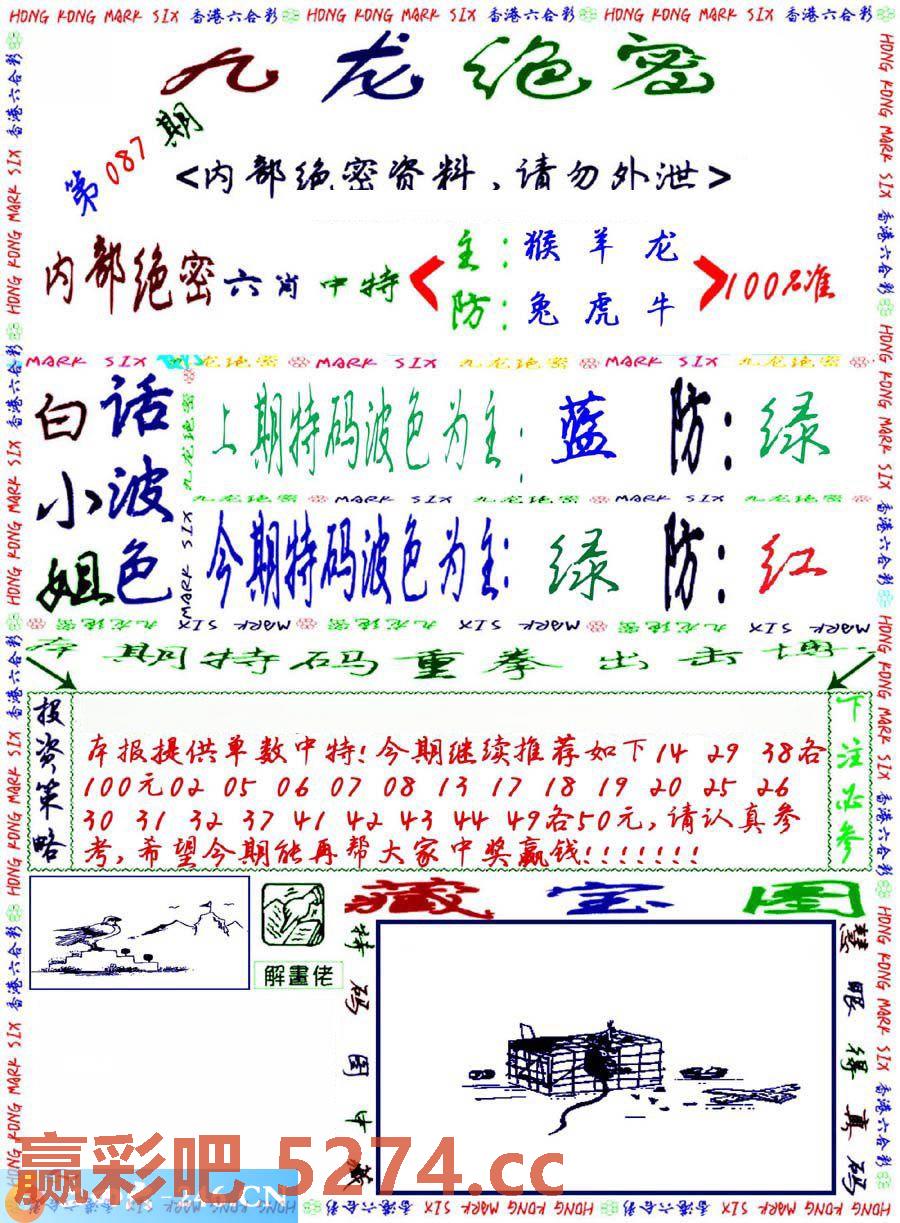 HONG KONG MARK SIX 香港六合彩 HONG KONG MARK SIX 香港六合彩 HONG KONG MARK SIX 香港六合彩
九龙绝密
第087期
<内部绝密资料、请勿外泄>
内部绝密六肖中特
主:猴羊龙
防:兔虎牛
100%准
MARK SIX 九龙绝密 MARK SIX 九龙绝密 MARK SIX 九龙绝密
白话小波姐色
上期特码波色为主:蓝 防:绿
九龙绝密 MARK SIX 九龙绝密 MARK SIX 九龙绝密
今期特码波色为主:绿 防:红
九龙绝密 MARK SIX 九龙绝密 MARK SIX 九龙绝密 MARK SIX
本期特码重拳出击
投资策略
本报提供单数中特!今期继续推荐如下14 29 38各
100元02 05 06 07 08 13 17 18 19 20 25 26
30 31 32 37 41 42 43 44 49各50元,请认真参
考,希望今期能再帮大家中奖赢钱!!!!!!!
下注必参
藏宝图
解畫佬
特码图中藏
慧眼得真码
赢彩吧 5274.cc
246.CN